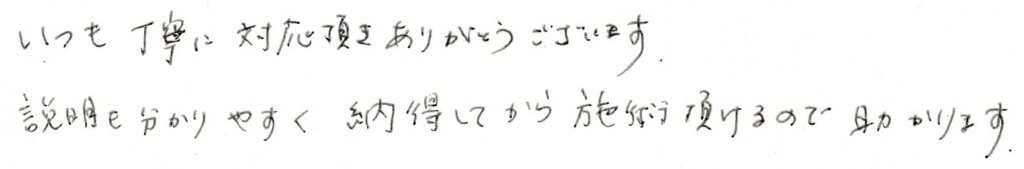 いつも丁寧に対応頂きありがとうございます.
説明も分かりやすく 納得してから施術頂けるので助かります.